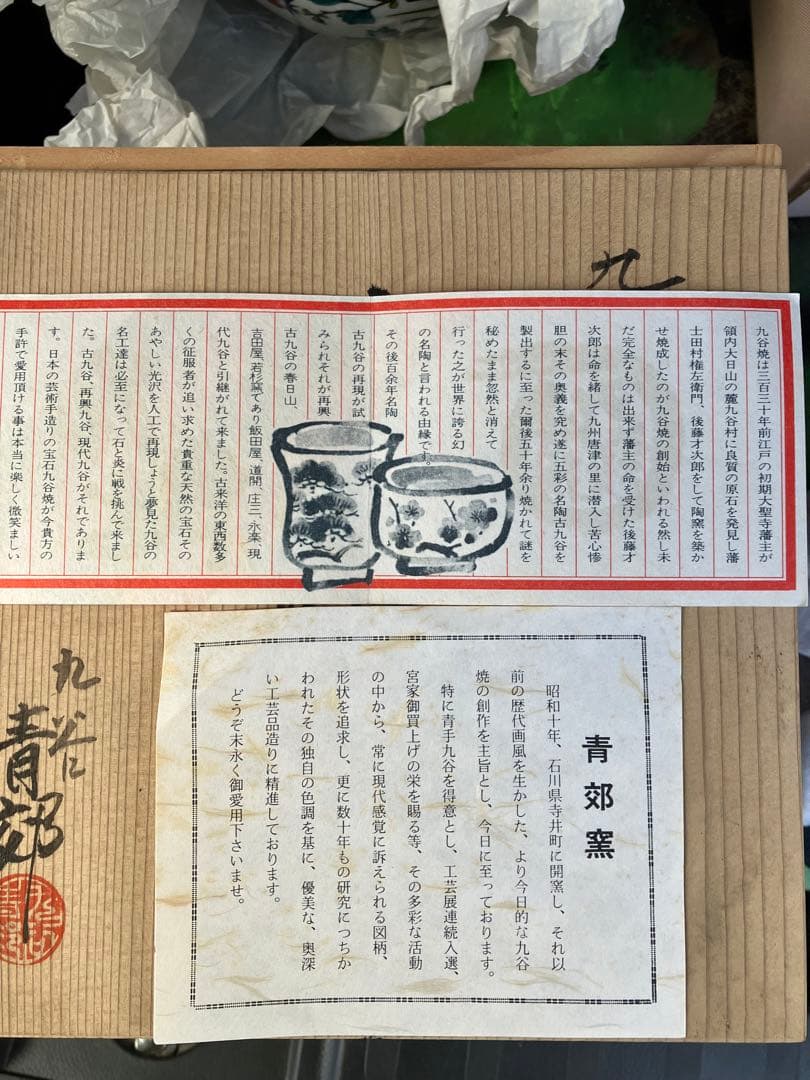 九
九谷焼は三百三十年前江戸の初期大聖寺藩主が
領内大日山の麓九谷村に良質の原石を発見し藩
士田村権左衛門、後藤才次郎をして陶窯を築か
せ焼成したのが九谷焼の創始といわれる然し未
だ完全なものは出来ず藩主の命を受けた後藤才
次郎は命を緒して九州唐津の里に潜入し苦心惨
胆の末その奥義を究め遂に五彩の名陶古九谷を
製出するに至った爾後五十年余り焼かれて謎を
秘めたまま忽然と消えて
行った之が世界に誇る幻
の名陶と言われる由縁です。
その後百余年名陶
古九谷の再現が試
みられそれが再興
古九谷の春日山、
吉田屋、若杉窯であり飯田屋、道開、庄三、永楽、現
代九谷と引継がれて来ました。古来洋の東西数多
くの征服者が追い求めた貴重な天然の宝石その
あやしい光沢を人工で再現しようと夢見た九谷の
名工達は必至になって石と炎に戦を挑んで来まし
た。古九谷、再興九谷、現代九谷がそれでありま
す。日本の芸術手造りの宝石九谷焼が今貴方の
手許で愛用頂ける事は本当に楽しく微笑ましい
青郊窯
昭和十年、石川県寺井町に開窯し、それ以
前の歴代画風を生かした、より今日的な九谷
焼の創作を主旨とし、今日に至っております。
特に青手九谷を得意とし、工芸展連続入選、
宮家御買上げの栄を賜る等、その多彩な活動
の中から、常に現代感覚に訴えられる図柄、
形状を追求し、更に数十年もの研究につちか
われたその独自の色調を基に、優美な、奥深
い工芸品造りに精進しております。
どうぞ末永く御愛用下さいませ。
九谷
青郊